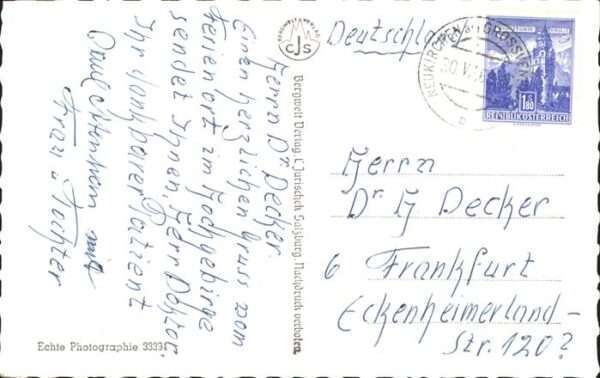 Herrn Dr Decker
Einen herzlichen Gruss vom
Ferienort im Hochgebirge
sendet Ihnen, Herr Doktor
Ihr dankbarer Patient
Paul mit
Frau u Tochter
Echte Photographie 3333
BERGWELTVERLAG
CJS
Bergwelt Verlag, C. Jurischek Salzburg. Nachdruck verboten.
Deutschland
NEUKIRCHEN am GROSSVEN
1.80
REPUBLIK ÖSTERREICH
Herrn
Dr H Decker
6 Frankfurt
Eckenheimerland-
Str. 120?